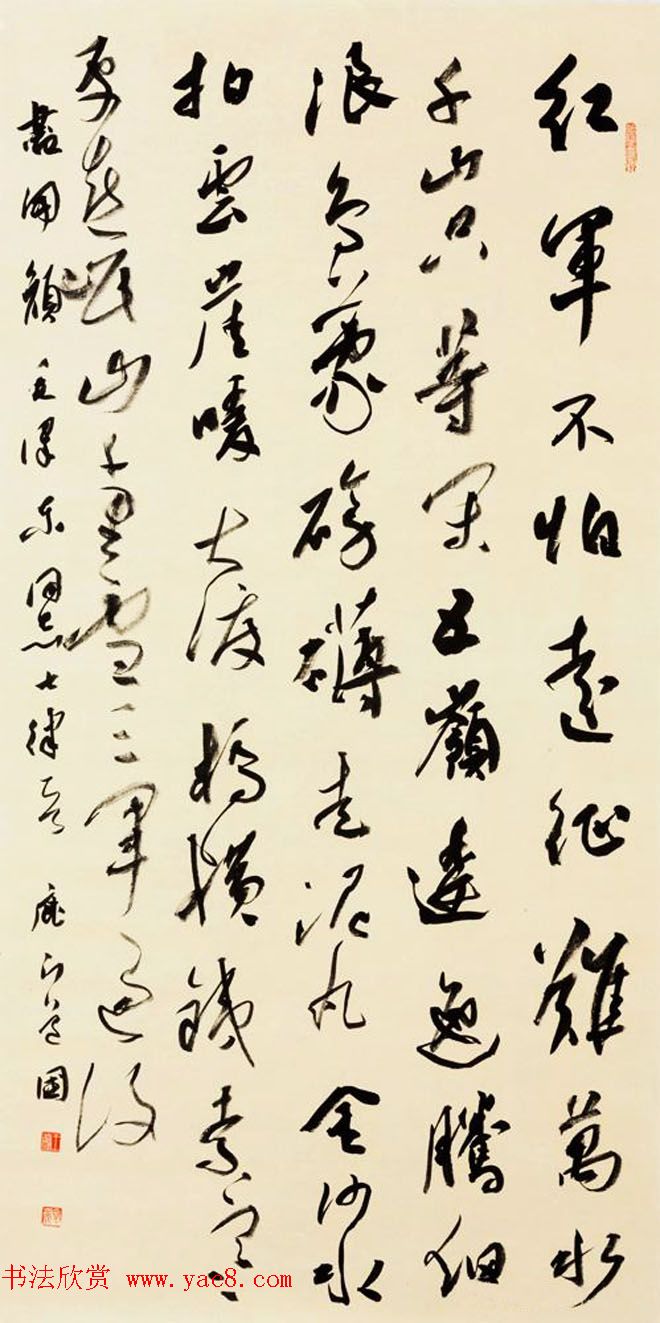 红軍不怕遠征難萬水
千山只等闲五嶺逶迤騰细
浪烏蒙磅礴走泥丸金沙水
拍雲崖暖大渡橋横鐵索寒
更喜岷山千里雪三軍过後
盡開顏 毛澤东同志七律一首
书法欣赏 www.yac8.com